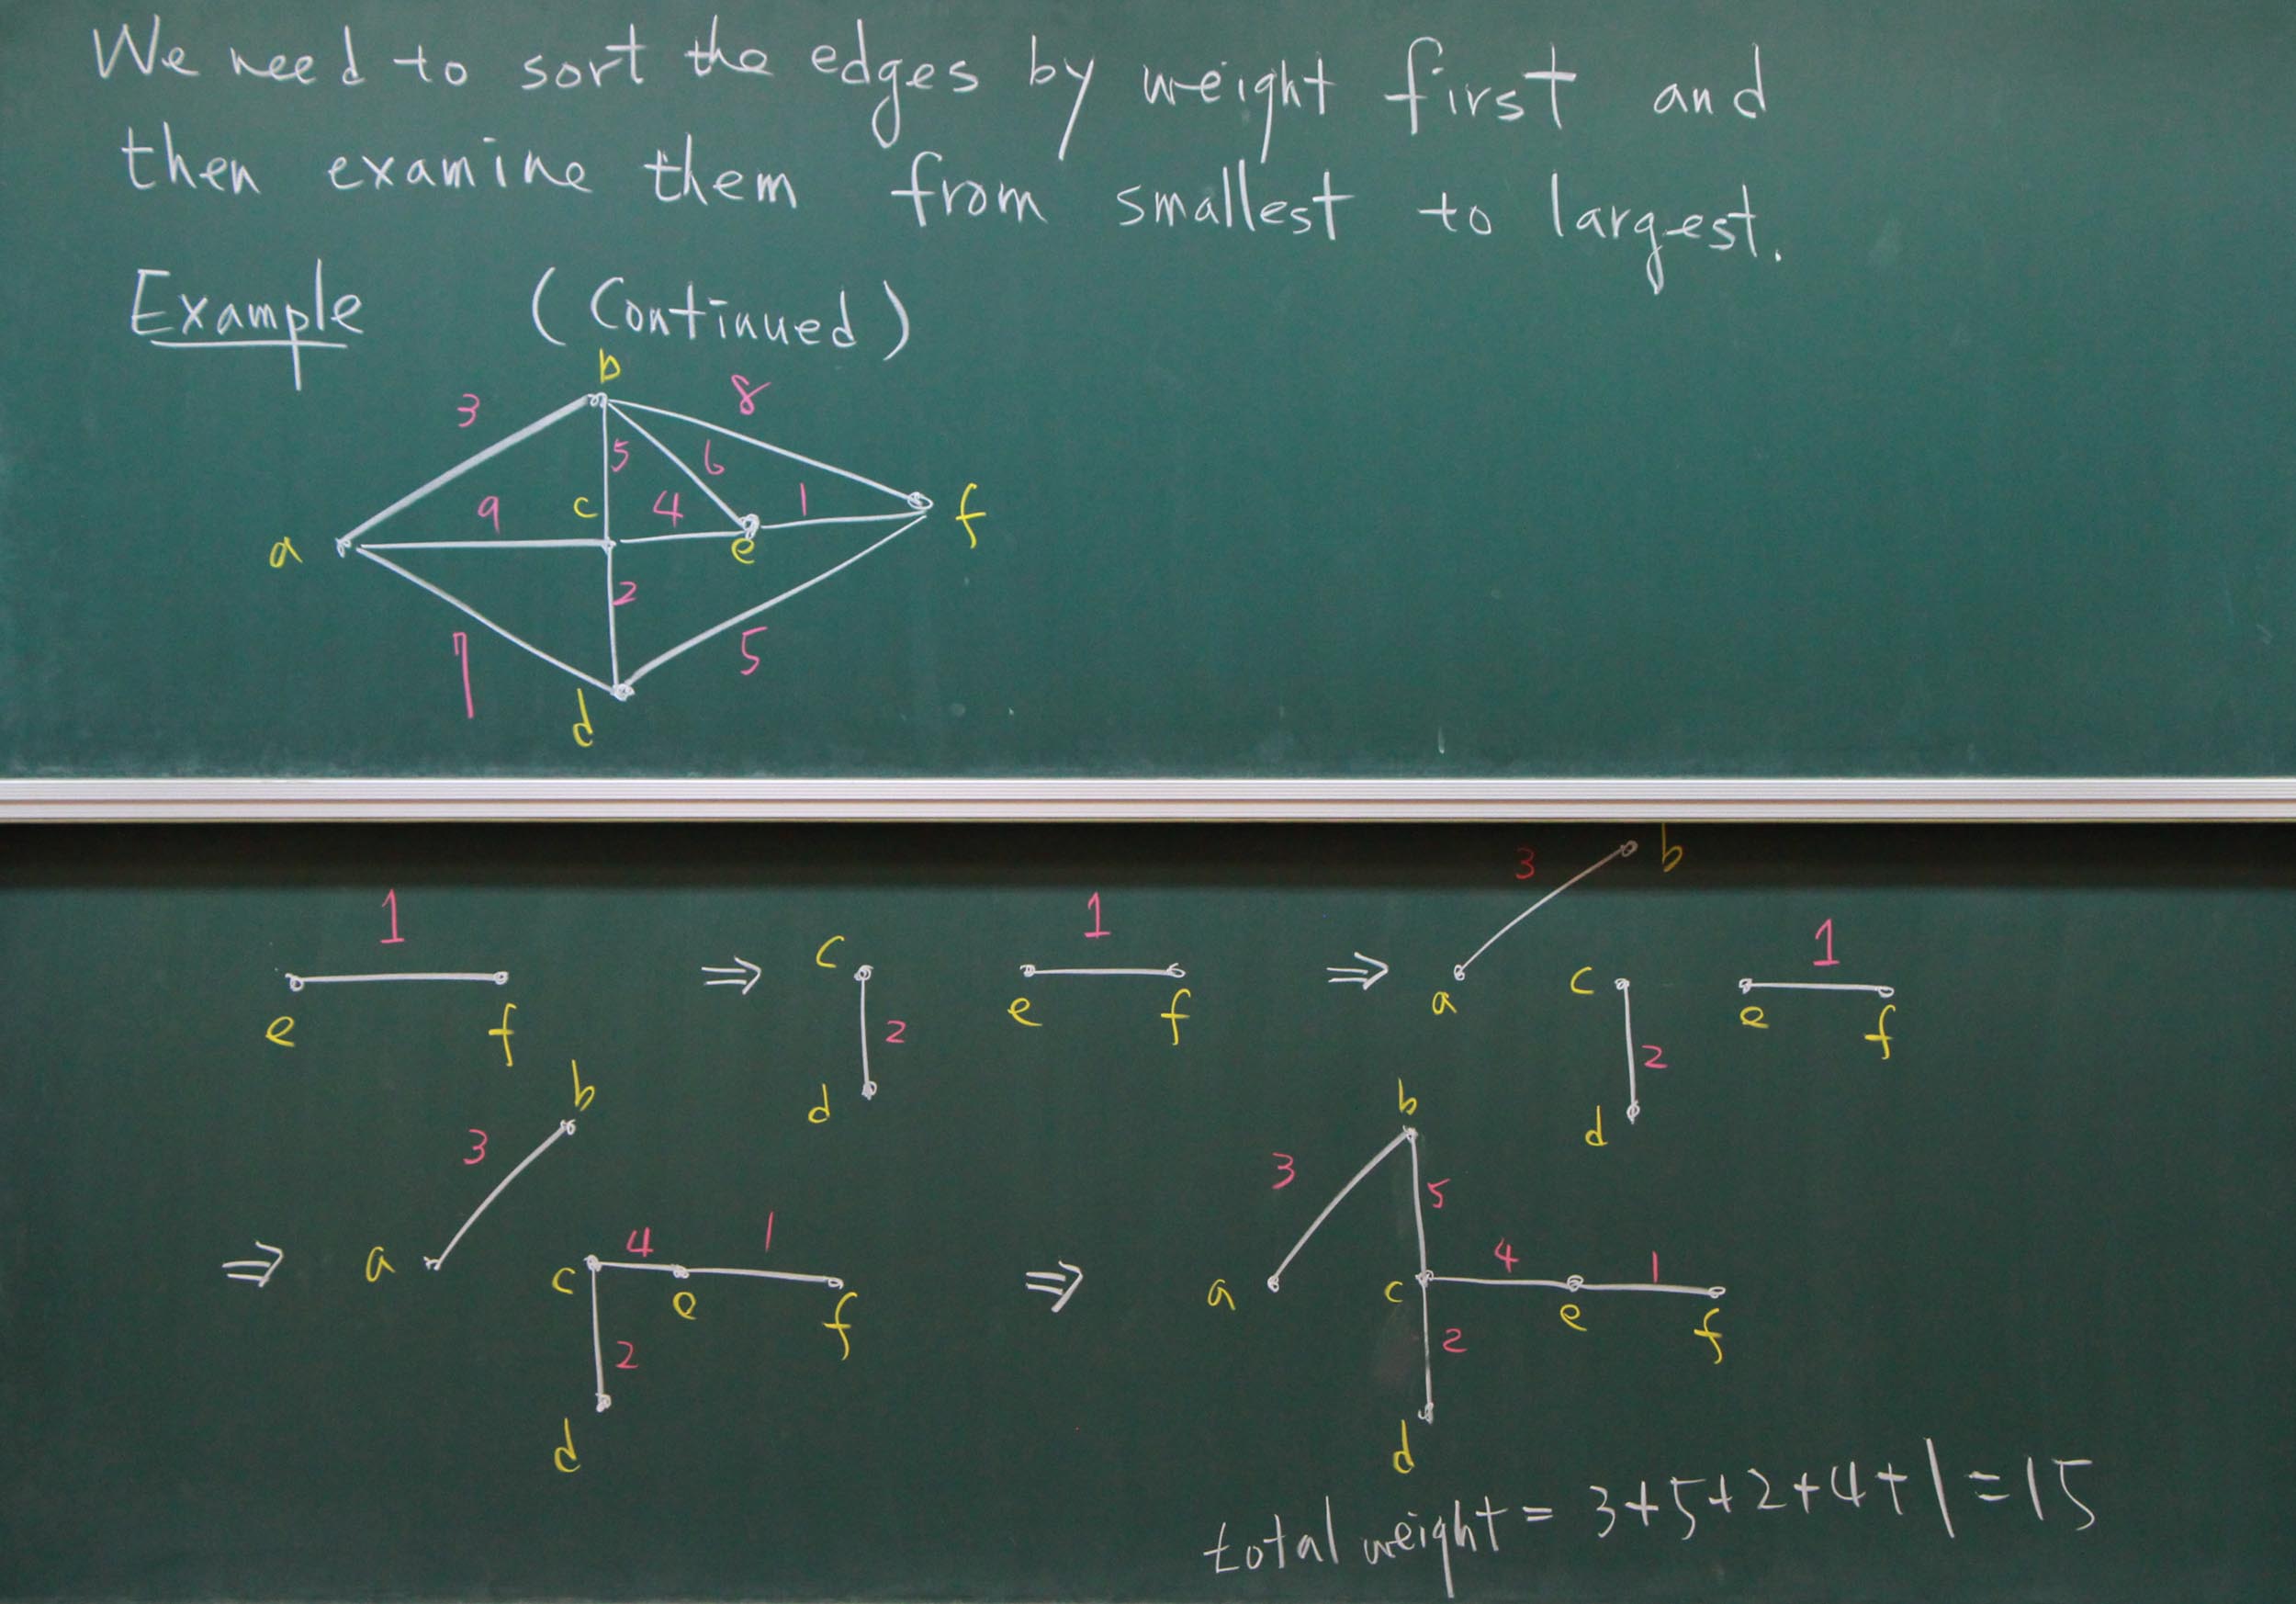 We need to sort the edges by weight first and
then examine them from smallest to largest.
Example (Continued)
b
3 8
5 6
9 c 4 1 f
a e
2
7 5
d
3 b
1 ⇒ c 1 ⇒ 1
e f 2 e f a c e f
d 2
d
b b
3 3 5
⇒ a 4 1 ⇒ a 4 1
c e f c e f
2 2
d d
total weight = 3+5+2+4+1=15